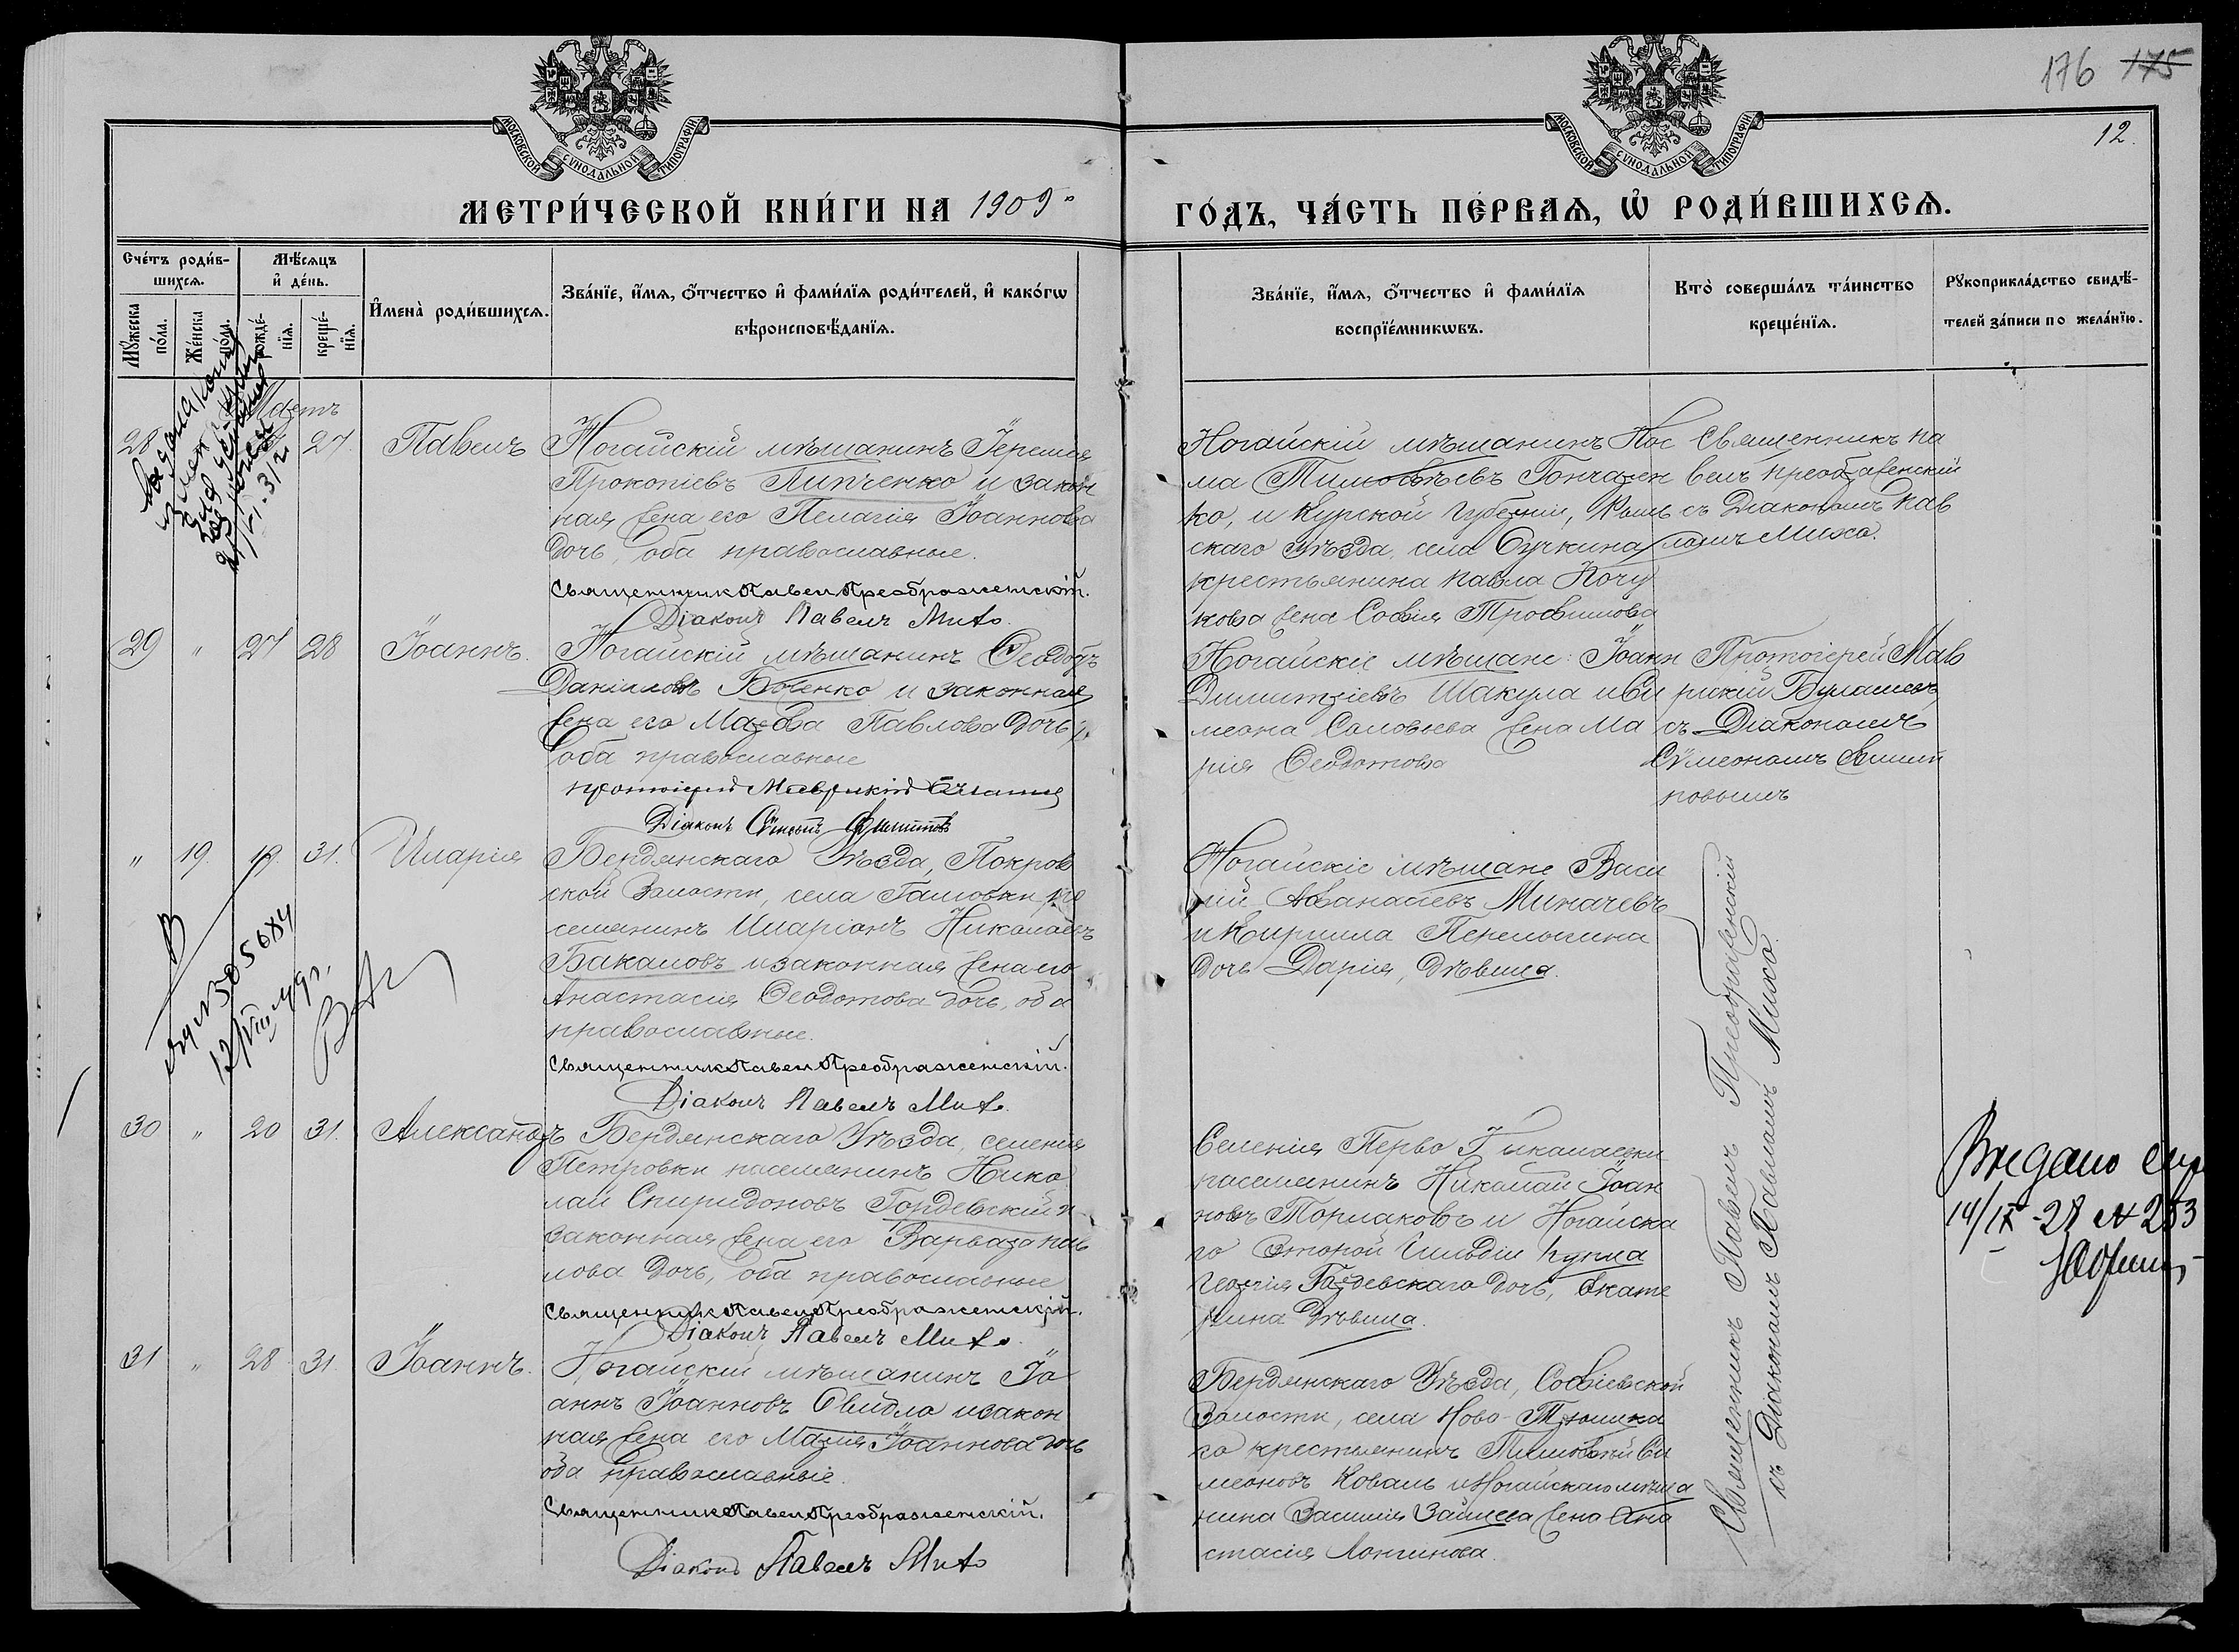 176 175
12.
МОСКОВСКОЙ СѴНОДАЛЬНОЙ ТИПОГРАФІИ
МОСКОВСКОЙ СѴНОДАЛЬНОЙ ТИПОГРАФІИ
МЕТРИ́ЧЕСКОЙ КНИ́ГИ НА 1909
ГО́ДЪ, ЧА́СТЬ ПЕ́РВАѦ, Ѡ҆ РОДИ́ВШИХСѦ.
Сче́тъ роди́в-
шихсѧ.
Мꙋ́жеска
по́ла.
Же́нска
по́ла.
Мѣ́сѧцъ
и҆ де́нь.
рожде́-
нїѧ.
креще́-
нїѧ.
И҆мена̀ роди́вшихсѧ.
Зва́нїе, и҆́мѧ, ѻ҆́тчество и҆ фами́лїѧ роди́телей, и҆ како́гѡ
вѣроисповѣ́данїѧ.
Зва́нїе, и҆́мѧ, ѻ҆́тчество и҆ фами́лїѧ
воспрїе́мникѡвъ.
Кто̀ соверша́лъ та́инство
креще́нїѧ.
Рꙋкоприкла́дство свидѣ́-
телей за́писи по жела́нїю.
28
27
Павелъ
Ногайскій мѣщанинъ Іеремія
Прокопіевъ Липченко и закон
ная жена его Пелагія Іоаннова
дочь, оба православные.
Священник Павел Преображенскій.
Діаконъ Павелъ Михо.
Ногайскій мѣщанинъ Кос
ма Тимоѳеевъ Гончарен
ко, и Курской губерніи, Рыль
скаго уѣзда, села Сучкина
крестьянина Павла Кочу
кова жена Софія Трофимова
Священникъ Па
велъ Преображенскій
съ Діакономъ Пав
ломъ Михо.
29 " 27 28
Іоаннъ.
Ногайскій мѣщанинъ Ѳеодотъ
Даніиловъ Боженко и законная
жена его Марѳа Павлова дочь,
оба православные
протоіерей Маврикій
Діаконъ Сѵмеонъ Филипповъ
Ногайскіе мѣщане: Іоанн
Димитріевъ Шакула и Си
меона Соловьева жена Ма
рія Ѳеодотова
Протоіерей Мав
рикій
съ Діакономъ
Сѵмеономъ Филип
повымъ
" 19. 19. 31.
Иларія
Бердянскаго Уѣзда, Покров
ской Волости, села Гамовки по
селянинъ Иларіонъ Николаевъ
Бакаловъ и законная жена его
Анастасія Ѳеодотова дочь, оба
православные.
Священник Павел Преображенскій.
Діаконъ Павелъ Михо.
Ногайскіе мѣщане Васи
лій Аѳанасіевъ Миначевъ
и Кирилла Перелыгина
дочь Дарія, дѣвица.
30 " 20 31.
Александръ
Бердянскаго Уѣзда, селенія
Петровки поселянинъ Нико
лай Спиридоновъ Гордевскій и
законная жена его Варвара Пав
лова дочь, оба православные
Священник Павел Преображенскій.
Діаконъ Павелъ Михо.
Селенія Перво Николаевки
поселянинъ Николай Іоан
новъ Тормаковъ и Ногайска
го второй гильдіи купца
Георгія Гордевскаго дочь, Екате
рина дѣвица.
14/IX-28 № 253
31 " 28 31.
Іоаннъ.
Ногайскій мѣщанинъ Іо
аннъ Іоанновъ Свидло и закон
ная жена его Марія Іоаннова дочь
оба православные.
Священник Павел Преображенскій.
Діаконъ Павелъ Михо
Бердянскаго Уѣзда, Софіевской
Волости, села Ново-Троицка
го крестьянинъ Тимоѳей Си
меоновъ Коваль и Ногайскаго мѣща
нина Василія Зайцева жена Ана
стасія Лонгинова.
Священникъ Павелъ Преображенскій
съ Діакономъ Павломъ Михо.